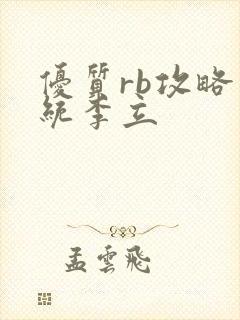 優質rb攻略
統李立
孟雲飛